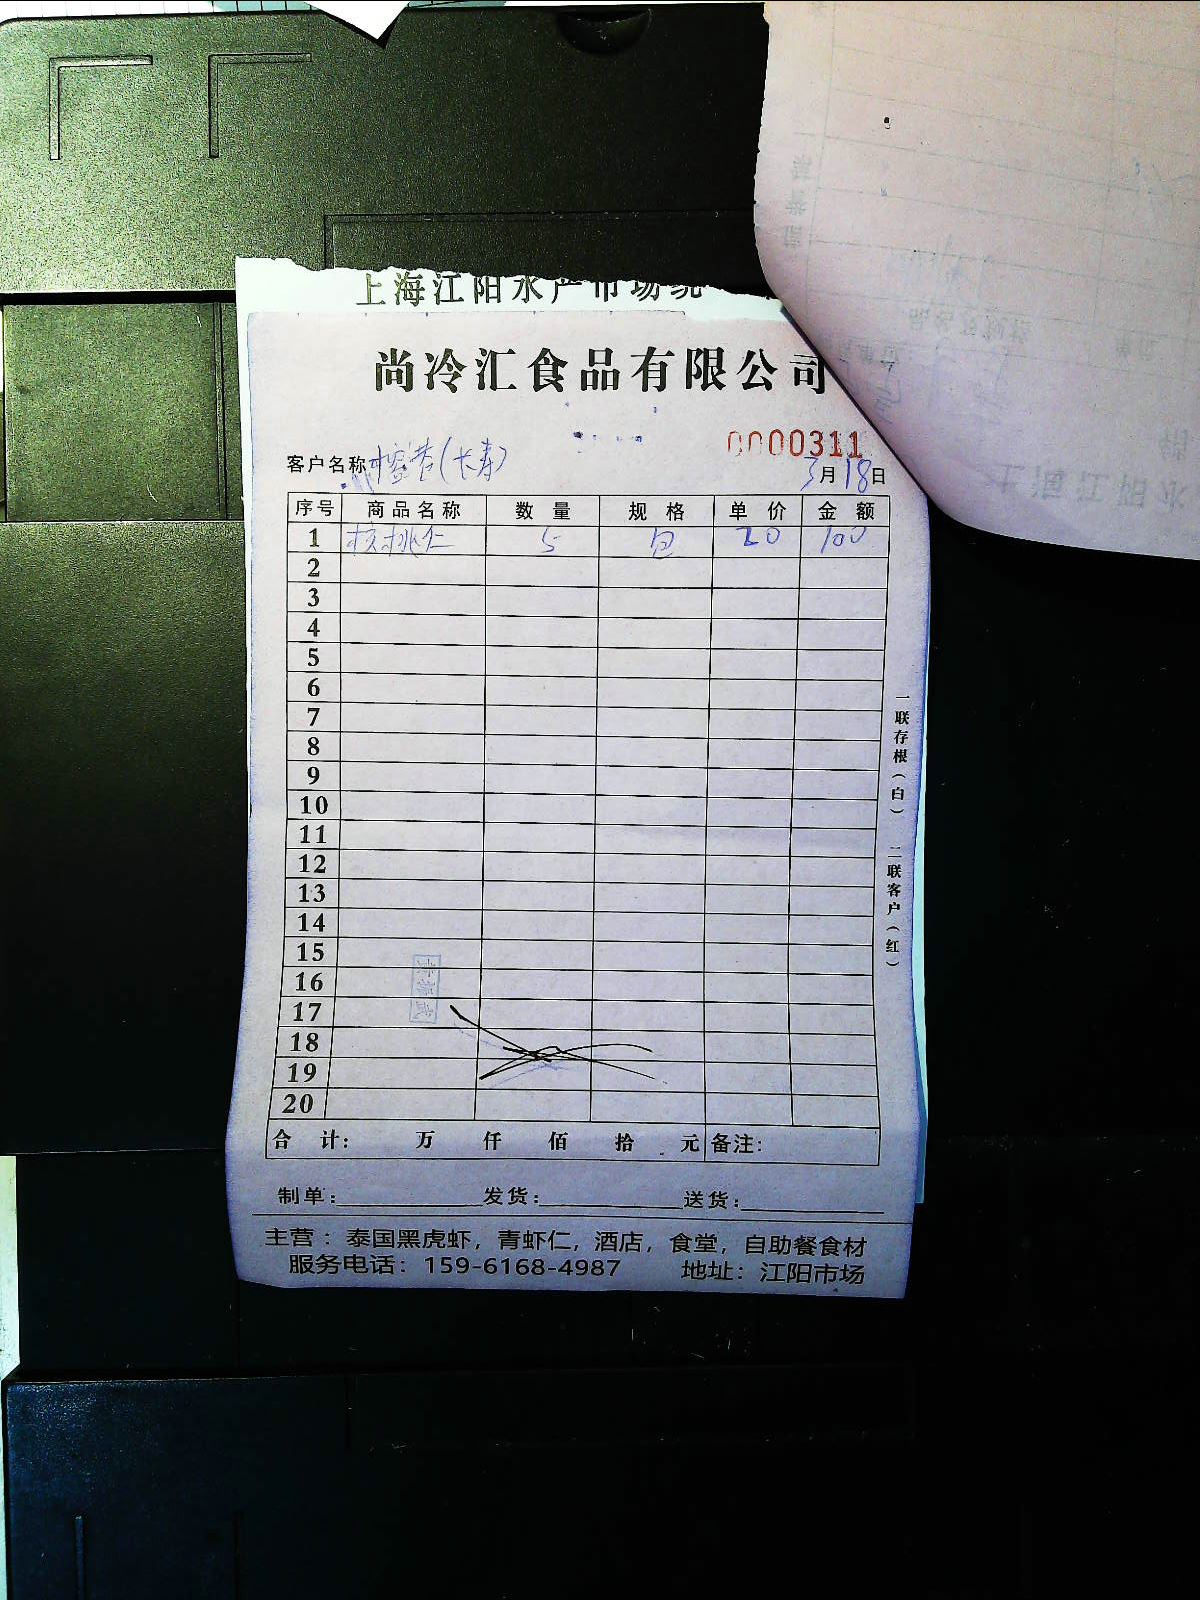 上海江阳水产市场统
尚冷汇食品有限公司
0000311
客户名称 榕港(长寿) 3月18日
序号 商品名称 数量 规格 单价 金额
1 核桃仁 5 包 20 100
2
3
4
5
6
7
8
9
10
11
12
13
14
15
16
17
18
19
20
合计: 万 仟 佰 拾 元 备注:
制单: 发货: 送货:
主营：泰国黑虎虾，青虾仁，酒店，食堂，自助餐食材
服务电话：159-6168-4987 地址：江阳市场
一联存根(白) 二联客户(红)